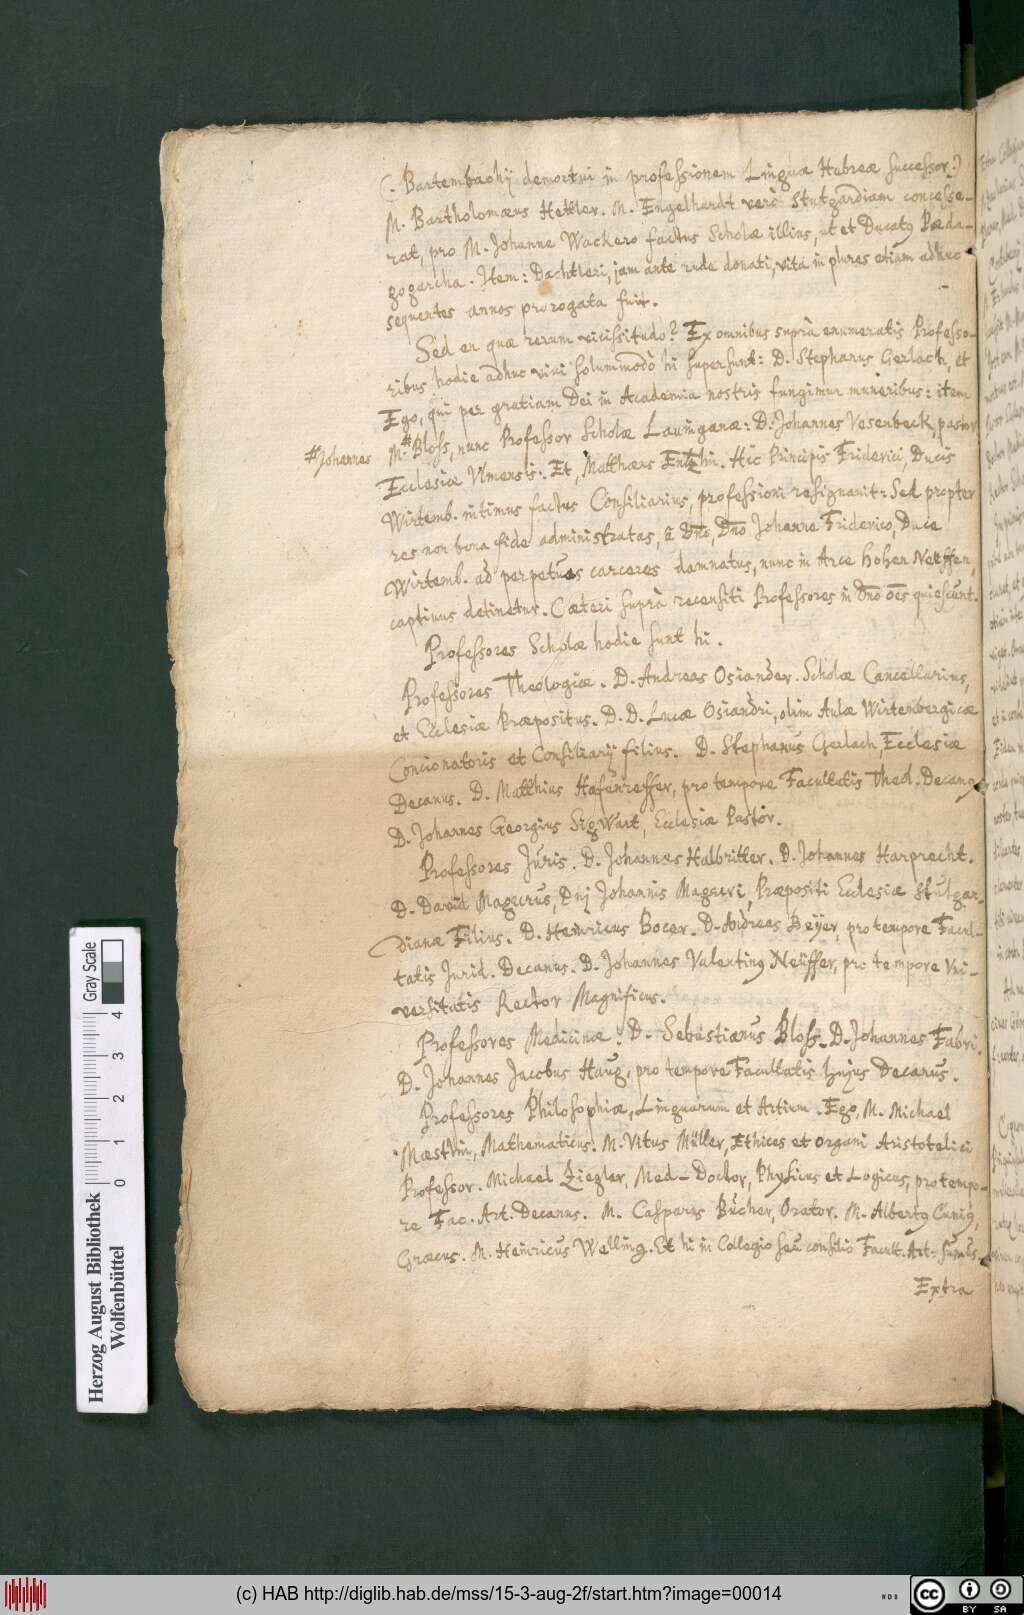 (. Bartembachij demortui in professionem Linguæ Hebreæ successor.)
M. Bartholomæus Hettler. M. Engelhardt verò Stutgardiam concesse-
rat, pro M. Johanne Wackero factus Scholæ illius, ut et Ducatq Pæda-
gogarcha. Item: Dachtleri, jam ante rude donati, vita in plures etiam adhuc
sequentes annos prorogata fuit.
Sed en quæ rerum vicissitudo? Ex omnibus suprà enumeratis Professo-
ribus hodie adhuc vivi solummodò hi supersunt: D. Stephanus Gerlach, et
Ego, qui per gratiam Dei in Academia nostris fungimur muneribus: item
# Johannes
M.# Bloss, nunc Professor Scholæ Lauinganæ: D. Johannes Vesenbeck, pastor
Ecclesiæ Vlmensis. Et, Matthæus Entzlin. Hic Principis Friderici, Ducis
Wirtemb. intimus factus Consiliarius, professioni resignavit: Sed propter
res non bona fide administratas, à Dno, Dno Johanne Friderico, Duce
Wirtemb. ad perpetuos carceres damnatus, nunc in Arce Hohen Neüffen,
captivus detinetur. Cæteri suprà recensiti Professores in Dno oes quiescunt.
Professores Scholæ hodie sunt hi.
Professores Theologicæ. D. Andreas Osiander. Scholæ Cancellarius,
et Ecclesiæ Præpositus. D. D. Lucæ Osiandri, olim Aulæ Wirtembergicæ
Concionatoris et Consiliarij filius. D. Stephanus Gerlach, Ecclesiæ
Decanus. D. Matthius Hafenreffer, pro tempore Facultatis Theol. Decanq
D. Johannes Georgius SigWart, Ecclesiæ Pastor.
Professores Juris. D. Johannes Halbritter. D. Johannes Harprecht.
D. David Magirus, Dnj Johannis Magiri, Præpositi Ecclesiæ Stutgar-
dianæ Filius. D. Heinricus Bocer. D. Andreas Beyer, pro tempore Facul-
tatis Jurid. Decanus. D. Johannes Valentinq Neüffer, pro tempore Vni-
versitatis Rector Magnificus.
Professores Medicinæ. D. Sebastianus Bloss. D. Johannes Fabri.
D. Johannes Jacobus Haug, pro tempore Facultatis hujus Decanus.
Professores Philosophiæ, Linguarum et Artium. Ego, M. Michael
Mæstlin, Mathematicus. M. Vitus Müller, Ethices et Organi Aristotelici
Professor. Michael Ziegler, Med- Doctor, Physicus et Logicus, pro tempo-
re Fac. Art. Decanus. M. Casparus Bücher, Orator. M. Albertq Cunig,
Græcus. M. Heinricus Welling. Et hi in Collegio seu consilio Facult. Art: sumus.
Extra
Gray Scale
0 1 2 3 4
Herzog August Bibliothek
Wolfenbüttel
(c) HAB http://diglib.hab.de/mss/15-3-aug-2f/start.htm?image=00014
WDB
cc
BY SA